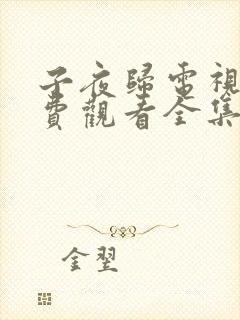 子夜歸電視
費觀看全集
金翌